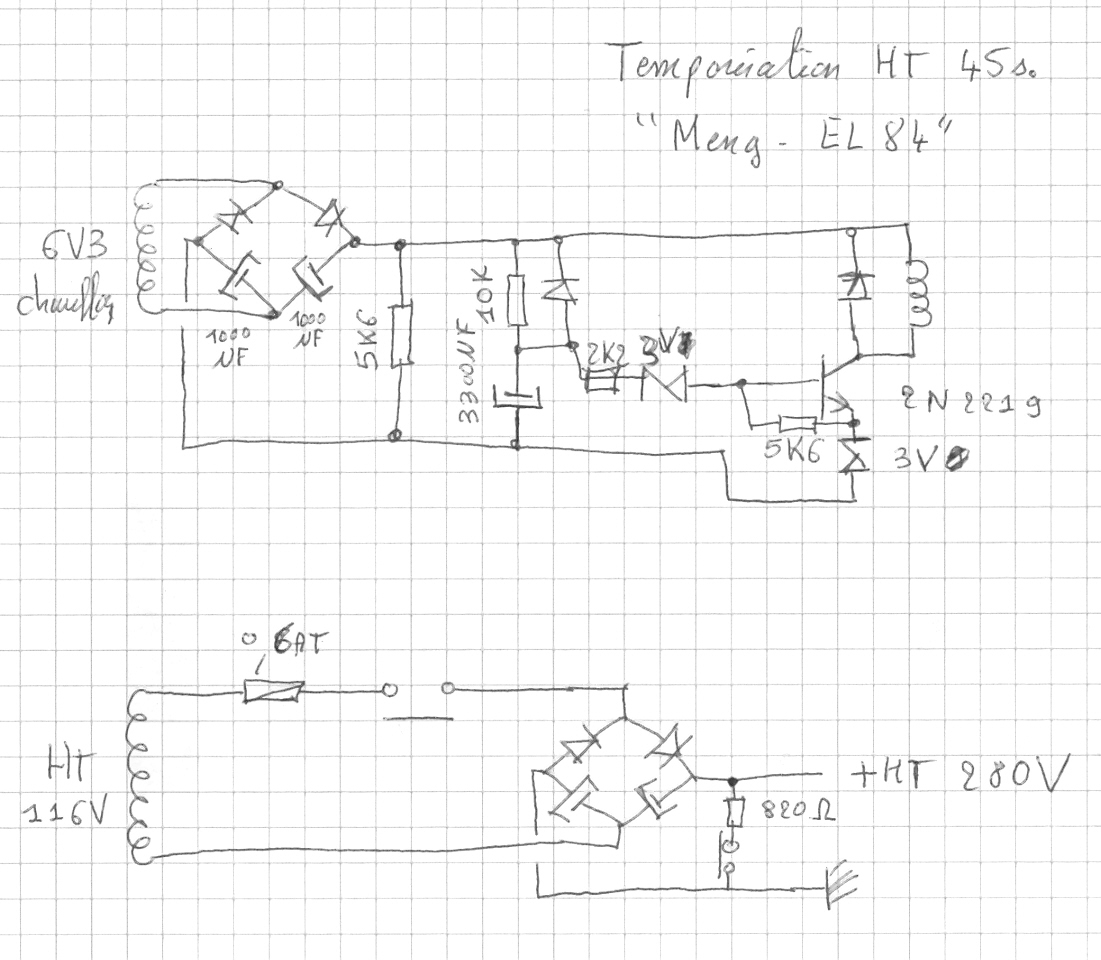 Temporisation HT 45s.
"Meng - EL 84"
6V3
chauffage
1000
UF
1000
UF
5K6
10K
3300UF
2K2
3V
2N2219
5K6
3V
0,6AT
HT
116V
+HT 280V
820Ω